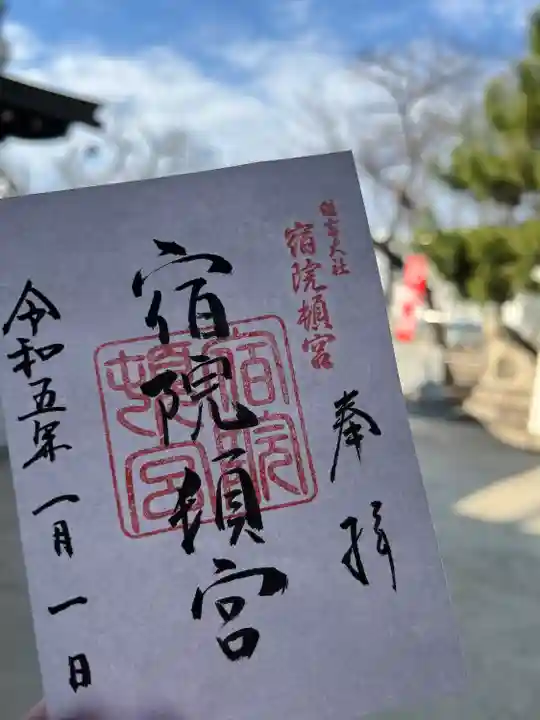 住吉大社
宿院頓宮
奉拝
宿院頓宮
宿院頓宮
令和五年一月一日